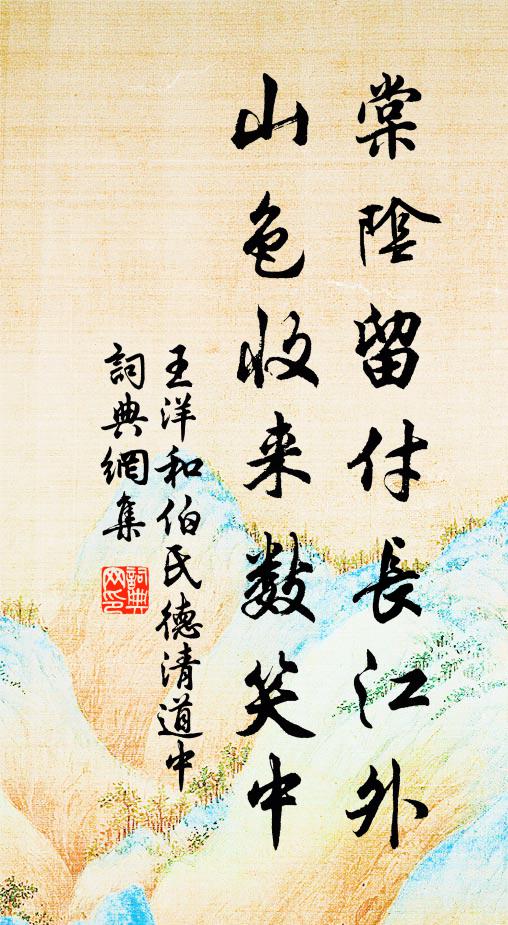 棠陰留付長江外
山色收来數笑中
王洋和伯氏德清道中
詞典網集
詞典
网印